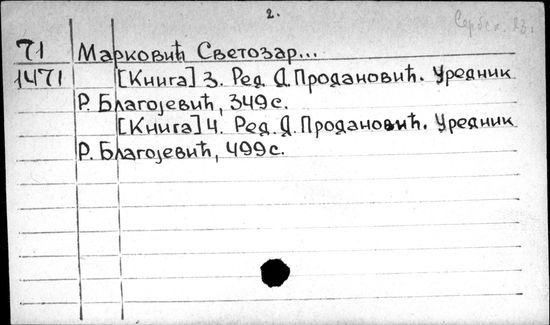 2.
Сербск. яз.
71 Марковић Светозар...
1471 [Књига] 3. Ред. Д. Продановић. Уредник
Р. Благојевић, 349 с.
[Књига] 4. Ред. Д. Продановић. Уредник
Р. Благојевић, 499 с.